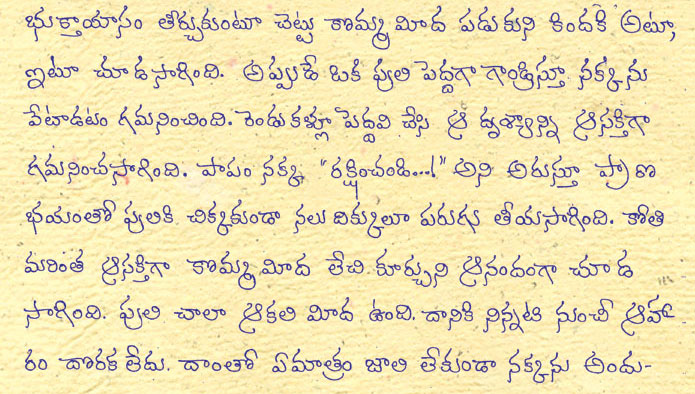 భుక్తాయాసం తీర్చుకుంటూ చెట్టు కొమ్మ మీద పడుకుని కిందకి అటూ,
ఇటూ చూడసాగింది. అప్పుడే ఒక పులి పెద్దగా గాండ్రిస్తూ నక్కను
వేటాడటం గమనించింది. రెండు కళ్లూ పెద్దవి చేసి ఆ దృశ్యాన్ని ఆసక్తిగా
గమనించసాగింది. పాపం నక్క "రక్షించండి...!" అని అరుస్తూ ప్రాణ
భయంతో పులికి చిక్కకుండా నలు దిక్కులూ పరుగు తీయసాగింది. కోతి
మరింత ఆసక్తిగా కొమ్మ మీద లేచి కూర్చుని ఆనందంగా చూడ
సాగింది. పులి చాలా ఆకలి మీద ఉంది. దానికి నిన్నటి నుంచీ ఆహా
రం దొరక లేదు. దాంతో ఏమాత్రం జాలి లేకుండా నక్కను అందు-